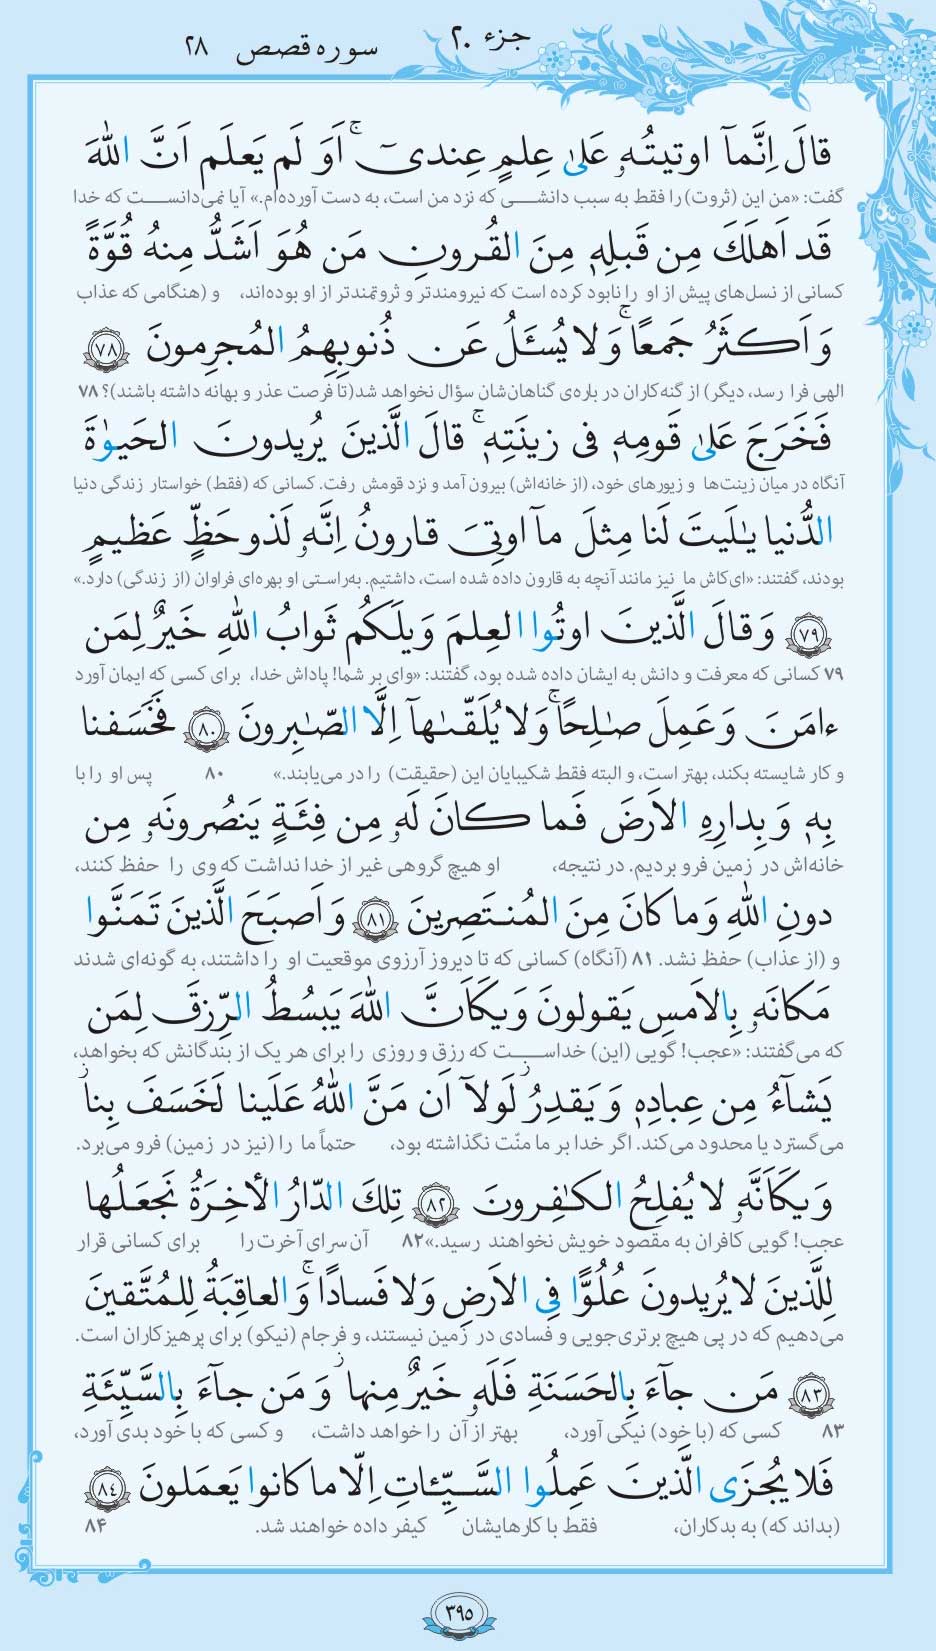 جزء ۲۰ سوره قصص ۲۸
قالَ اِنَّمآ اوتیتُهٗ عَلیٰ عِلمٍ عِندیٓ ۚ اَوَ لَم یَعلَم اَنَّ اللهَ
گفت: «من این (ثروت) را فقط به سبب دانشی که نزد من است، به دست آورده‌ام.» آیا نمی‌دانست که خدا
قَد اَهلَکَ مِن قَبلِهٖ مِنَ القُرونِ مَن هُوَ اَشَدُّ مِنهُ قُوَّةً
کسانی از نسل‌های پیش از او را نابود کرده است که نیرومندتر و ثروتمندتر از او بوده‌اند، و (هنگامی که عذاب
وَ اَکثَرُ جَمعًا ۚ وَ لا یُسئَلُ عَن ذُنوبِهِمُ المُجرِمونَ ﴿۷۸﴾
الهی فرا رسد، دیگر) از گنه‌کاران در باره‌ی گناهان‌شان سؤال نخواهد شد(تا فرصت عذر و بهانه داشته باشند)؟ ۷۸
فَخَرَجَ عَلیٰ قَومِهٖ فی زینَتِهٖ ۚ قالَ الَّذینَ یُریدونَ الحَیوٰةَ
آنگاه در میان زینت‌ها و زیورهای خود، (از خانه‌اش) بیرون آمد و نزد قومش رفت. کسانی که (فقط) خواستار زندگی دنیا
الدُّنیا یـٰلَیتَ لَنا مِثلَ مآ اوتِیَ قارونُ اِنَّهٗ لَذو حَظٍّ عَظیمٍ
بودند، گفتند: «ای‌کاش ما نیز مانند آنچه به قارون داده شده است، داشتیم. به‌راستی او بهره‌ای فراوان (از زندگی) دارد.»
﴿۷۹﴾ وَ قالَ الَّذینَ اوتُوا العِلمَ وَیلَکُم ثَوابُ اللهِ خَیرٌ لِمَن
۷۹ کسانی که معرفت و دانش به ایشان داده شده بود، گفتند: «وای بر شما! پاداش خدا، برای کسی که ایمان آورد
ءامَنَ وَ عَمِلَ صـٰلِحًا ۚ وَ لا یُلَقّـٰهآ اِلَّا الصّـٰبِرونَ ﴿۸۰﴾ فَخَسَفنا
و کار شایسته بکند، بهتر است، و البته فقط شکیبایان این (حقیقت) را در می‌یابند.» ۸۰ پس او را با
بِهٖ وَ بِدارِهِ الاَرضَ فَما کانَ لَهٗ مِن فِئَةٍ یَنصُرونَهٗ مِن
خانه‌اش در زمین فرو بردیم. در نتیجه، او هیچ گروهی غیر از خدا نداشت که وی را حفظ کنند،
دونِ اللهِ وَ ما کانَ مِنَ المُنتَصِرینَ ﴿۸۱﴾ وَ اَصبَحَ الَّذینَ تَمَنَّوا
و (از عذاب) حفظ نشد. ۸۱ (آنگاه) کسانی که تا دیروز آرزوی موقعیت او را داشتند، به گونه‌ای شدند
مَکانَهٗ بِالاَمسِ یَقولونَ وَیکَاَنَّ اللهَ یَبسُطُ الرِّزقَ لِمَن
که می‌گفتند: «عجب! گویی (این) خداست که رزق و روزی را برای هر یک از بندگانش که بخواهد،
یَشآءُ مِن عِبادِهٖ وَ یَقدِرُ ۖ لَولآ اَن مَنَّ اللهُ عَلَینا لَخَسَفَ بِنا ۖ
می‌گسترد یا محدود می‌کند. اگر خدا بر ما منّت نگذاشته بود، حتماً ما را (نیز در زمین) فرو می‌برد.
وَیکَاَنَّهٗ لا یُفلِحُ الکـٰفِرونَ ﴿۸۲﴾ تِلکَ الدّارُ الأخِرَةُ نَجعَلُها
عجب! گویی کافران به مقصود خویش نخواهند رسید.» ۸۲ آن سرای آخرت را برای کسانی قرار
لِلَّذینَ لا یُریدونَ عُلُوًّا فِی الاَرضِ وَ لا فَسادًا ۚ وَ العاقِبَةُ لِلمُتَّقینَ
می‌دهیم که در پی هیچ برتری‌جویی و فسادی در زمین نیستند، و فرجام (نیکو) برای پرهیزکاران است.
﴿۸۳﴾ مَن جآءَ بِالحَسَنَةِ فَلَهٗ خَیرٌ مِنها ۖ وَ مَن جآءَ بِالسَّیِّئَةِ
۸۳ کسی که (با خود) نیکی آورد، بهتر از آن را خواهد داشت، و کسی که با خود بدی آورد،
فَلا یُجزَی الَّذینَ عَمِلُوا السَّیِّـٔاتِ اِلّا ما کانوا یَعمَلونَ ﴿۸۴﴾
(بداند که) به بدکاران، فقط با کارهایشان کیفر داده خواهند شد. ۸۴
۳۹۵